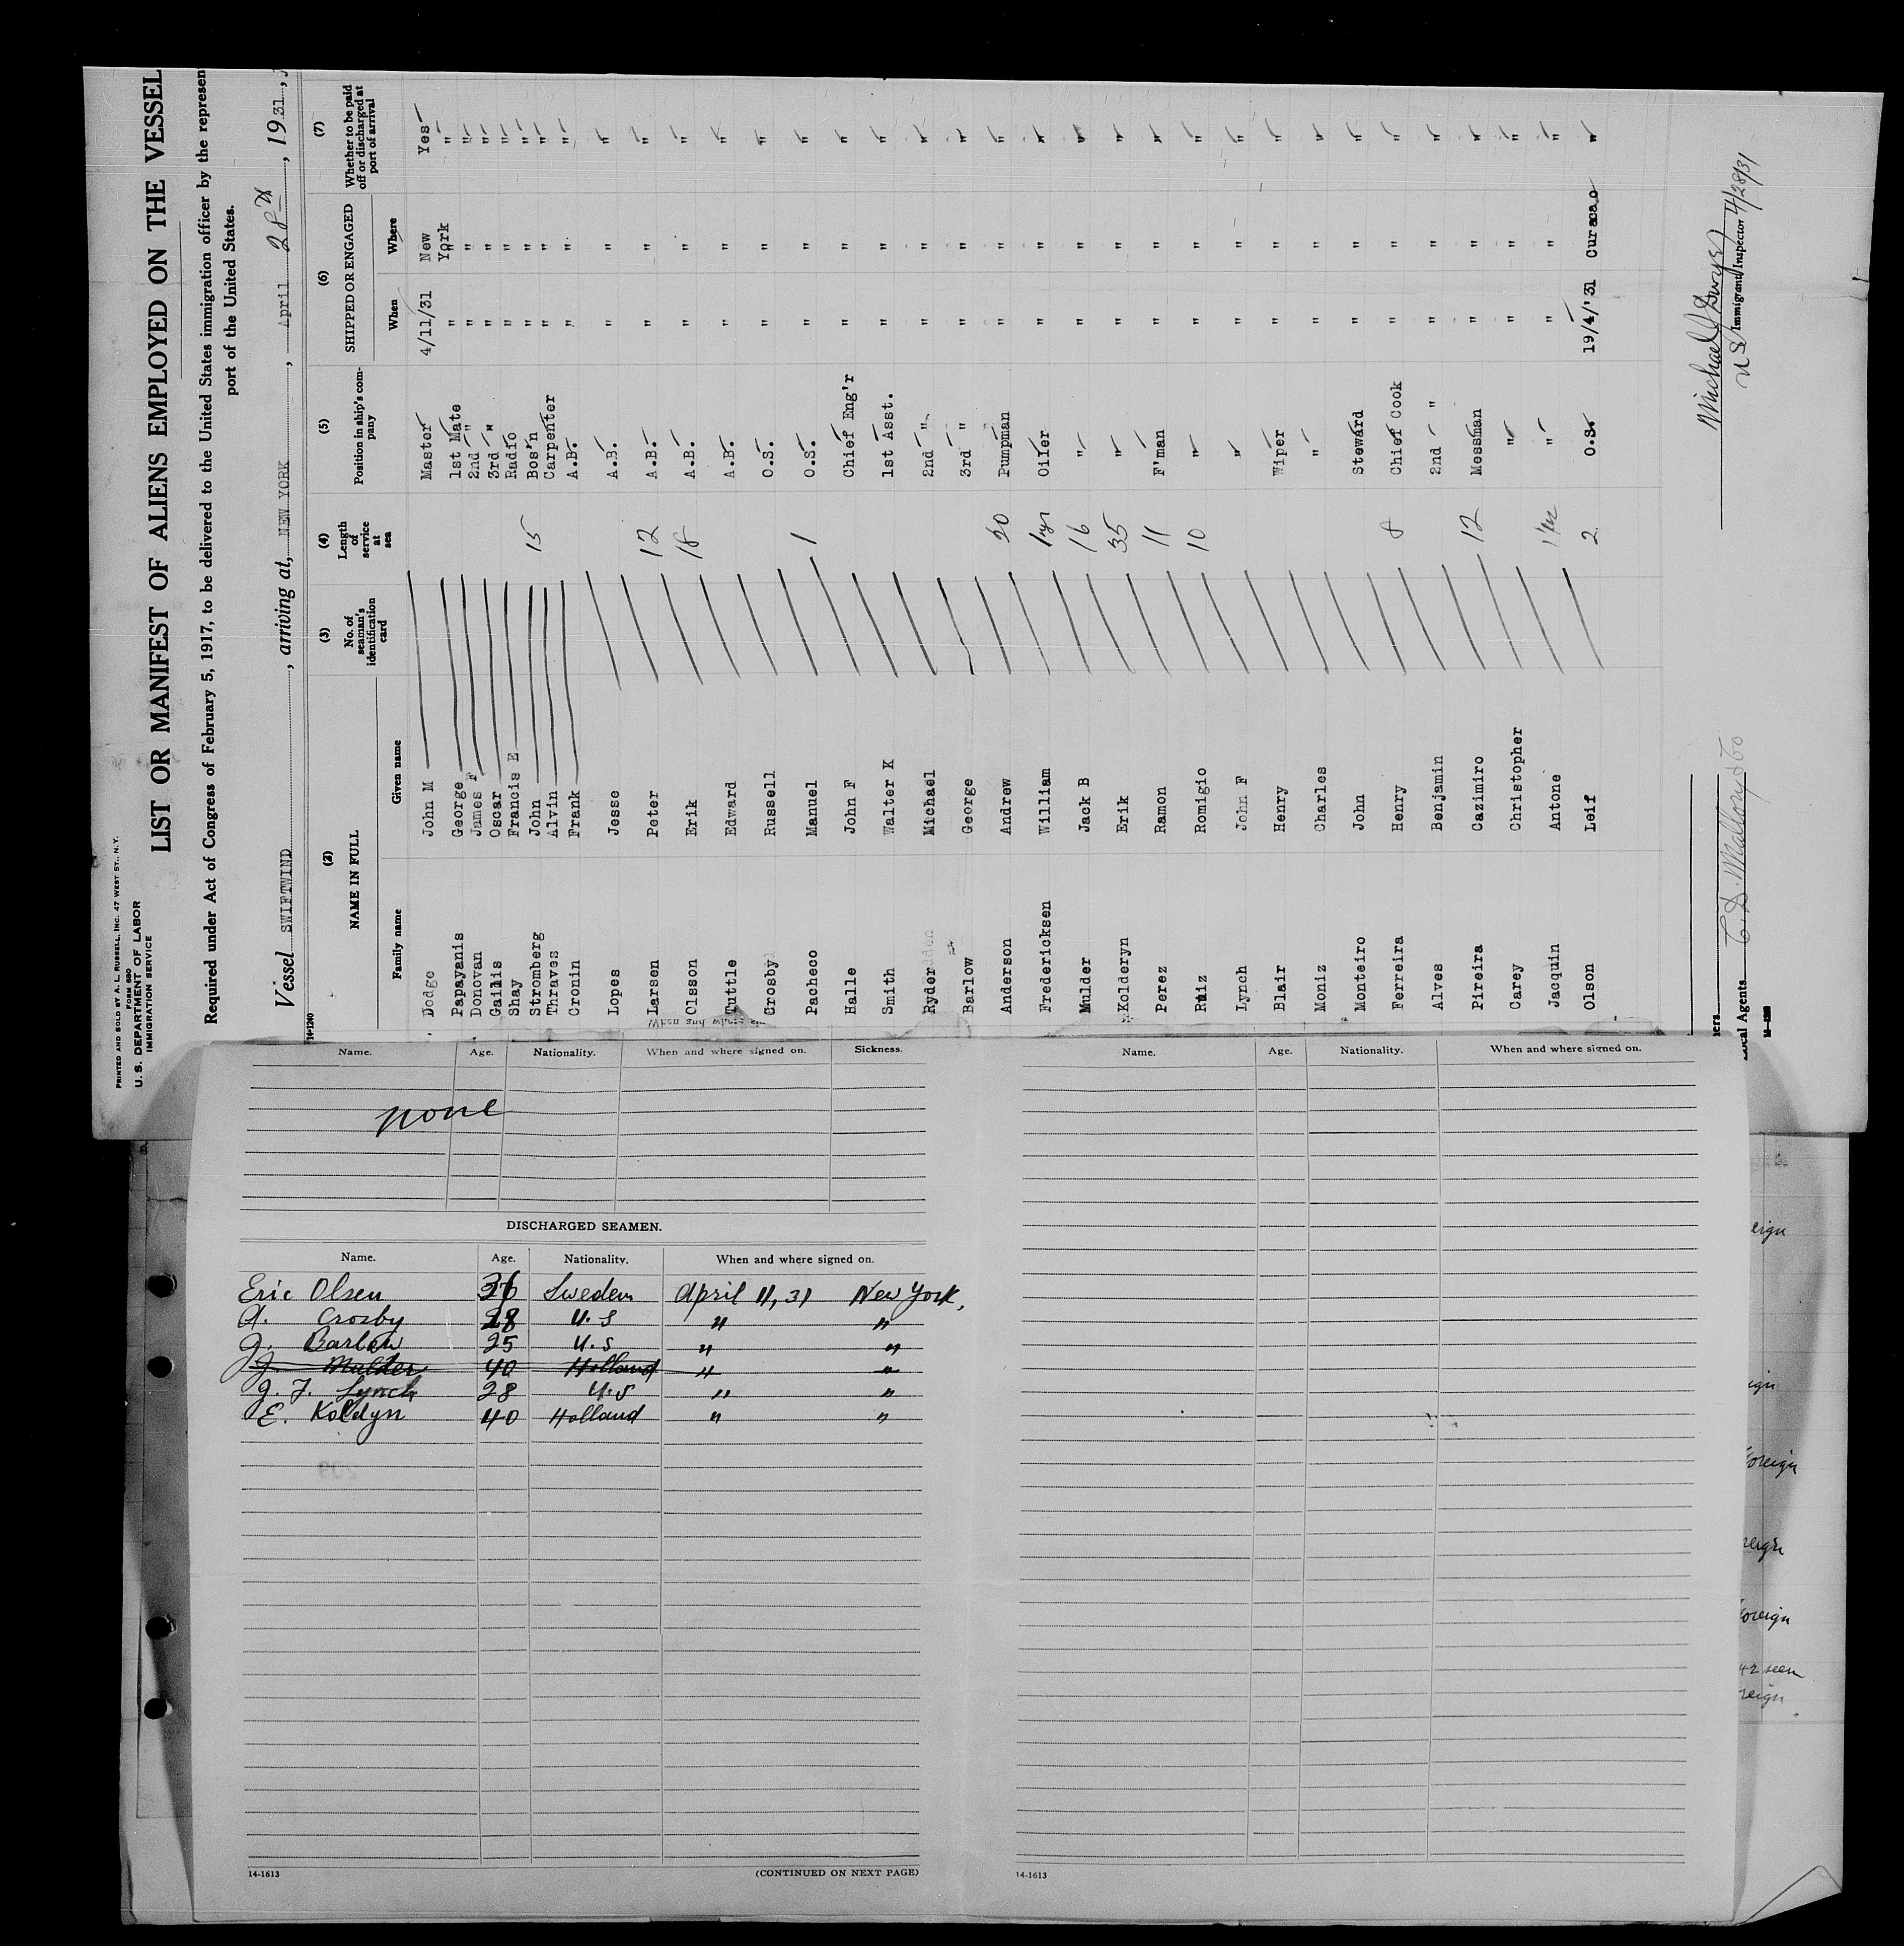 PRINTED AND SOLD BY A. L. RUSSELL, INC. 47 WEST ST., N.Y.
FORM 680
U. S. DEPARTMENT OF LABOR
IMMIGRATION SERVICE
LIST OR MANIFEST OF ALIENS EMPLOYED ON THE VESSEL
Required under Act of Congress of February 5, 1917, to be delivered to the United States immigration officer by the represen
port of the United States.
Vessel SWIFTWIND, arriving at, NEW YORK, April 28th, 1931,
14-1240
(2) (3) (4) (5) (6) (7)
NAME IN FULL No. of seaman's identification card Length of service at sea Position in ship's company SHIPPED OR ENGAGED Whether to be paid off or discharged at port of arrival
Family name Given name When Where
Dodge John M Master 4/11/31 New York Yes
Papayanis George 1st Mate " " "
Donovan James F 2nd " " " "
Gailis Oscar 3rd " " " "
Shay Francis E Radio " " "
Stromberg John 15 Bos'n " " "
Thraves Alvin Carpenter " " "
Cronin Frank A.B. " " "
Lopes Jesse A.B. " " "
Larsen Peter 12 A.B. " " "
Olsson Erik 18 A.B. " " "
Tuttle Edward A.B. " " "
Crosby Russell O.S. " " "
Pacheco Manuel 1 O.S. " " "
Halle John F Chief Eng'r " " "
Smith Walter K 1st Asst. " " "
Ryder Michael 2nd " " " "
Barlow George 3rd " " " "
Anderson Andrew 20 Pumpman " " "
Fredericksen William 1 yr Oiler " " "
Mulder Jack B 16 " " " "
Kolderyn Erik 35 " " " "
Perez Ramon 11 F'man " " "
Ruiz Romigio 10 " " " "
Lynch John F " " " "
Blair Henry Wiper " " "
Moniz Charles " " " "
Monteiro John Steward " " "
Ferreira Henry 8 Chief Cook " " "
Alves Benjamin 2nd " " " "
Pireira Cazimiro 12 Messman " " "
Carey Christopher " " " "
Jacquin Antone " " " "
Olson Leif 2 O.S. 19/4/'31 Curacao "
Local Agents C. D. Mallory & Co
US Immigrant Inspector 4/28/31
When and where si
Name. Age. Nationality. When and where signed on. Sickness.
none
DISCHARGED SEAMEN.
Name. Age. Nationality. When and where signed on.
Eric Olsen 36 Sweden April 11, 31 New York,
Crosby 28 U. S " "
G. Barlow 25 U. S " "
J. Mulder 40 Holland " "
J. F. Lynch 28 U. S " "
E. Koldyn 40 Holland " "
14-1613 (CONTINUED ON NEXT PAGE)
Name. Age. Nationality. When and where signed on.
14-1613
eign
ign
foreign
reign
foreign
seen
reign